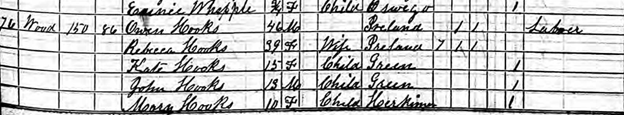 Eminie Whipple 3/4 F Child Oswego 1
76 Wood 150 86 Owen Hooks 46 M Ireland 1 1 Laborer
Rebecca Hooks 39 F Wife Ireland 7 1 1
Kate Hooks 15 F Child Green 1
John Hooks 13 M Child Green 1
Mary Hooks 10 F Child Herkimer 1